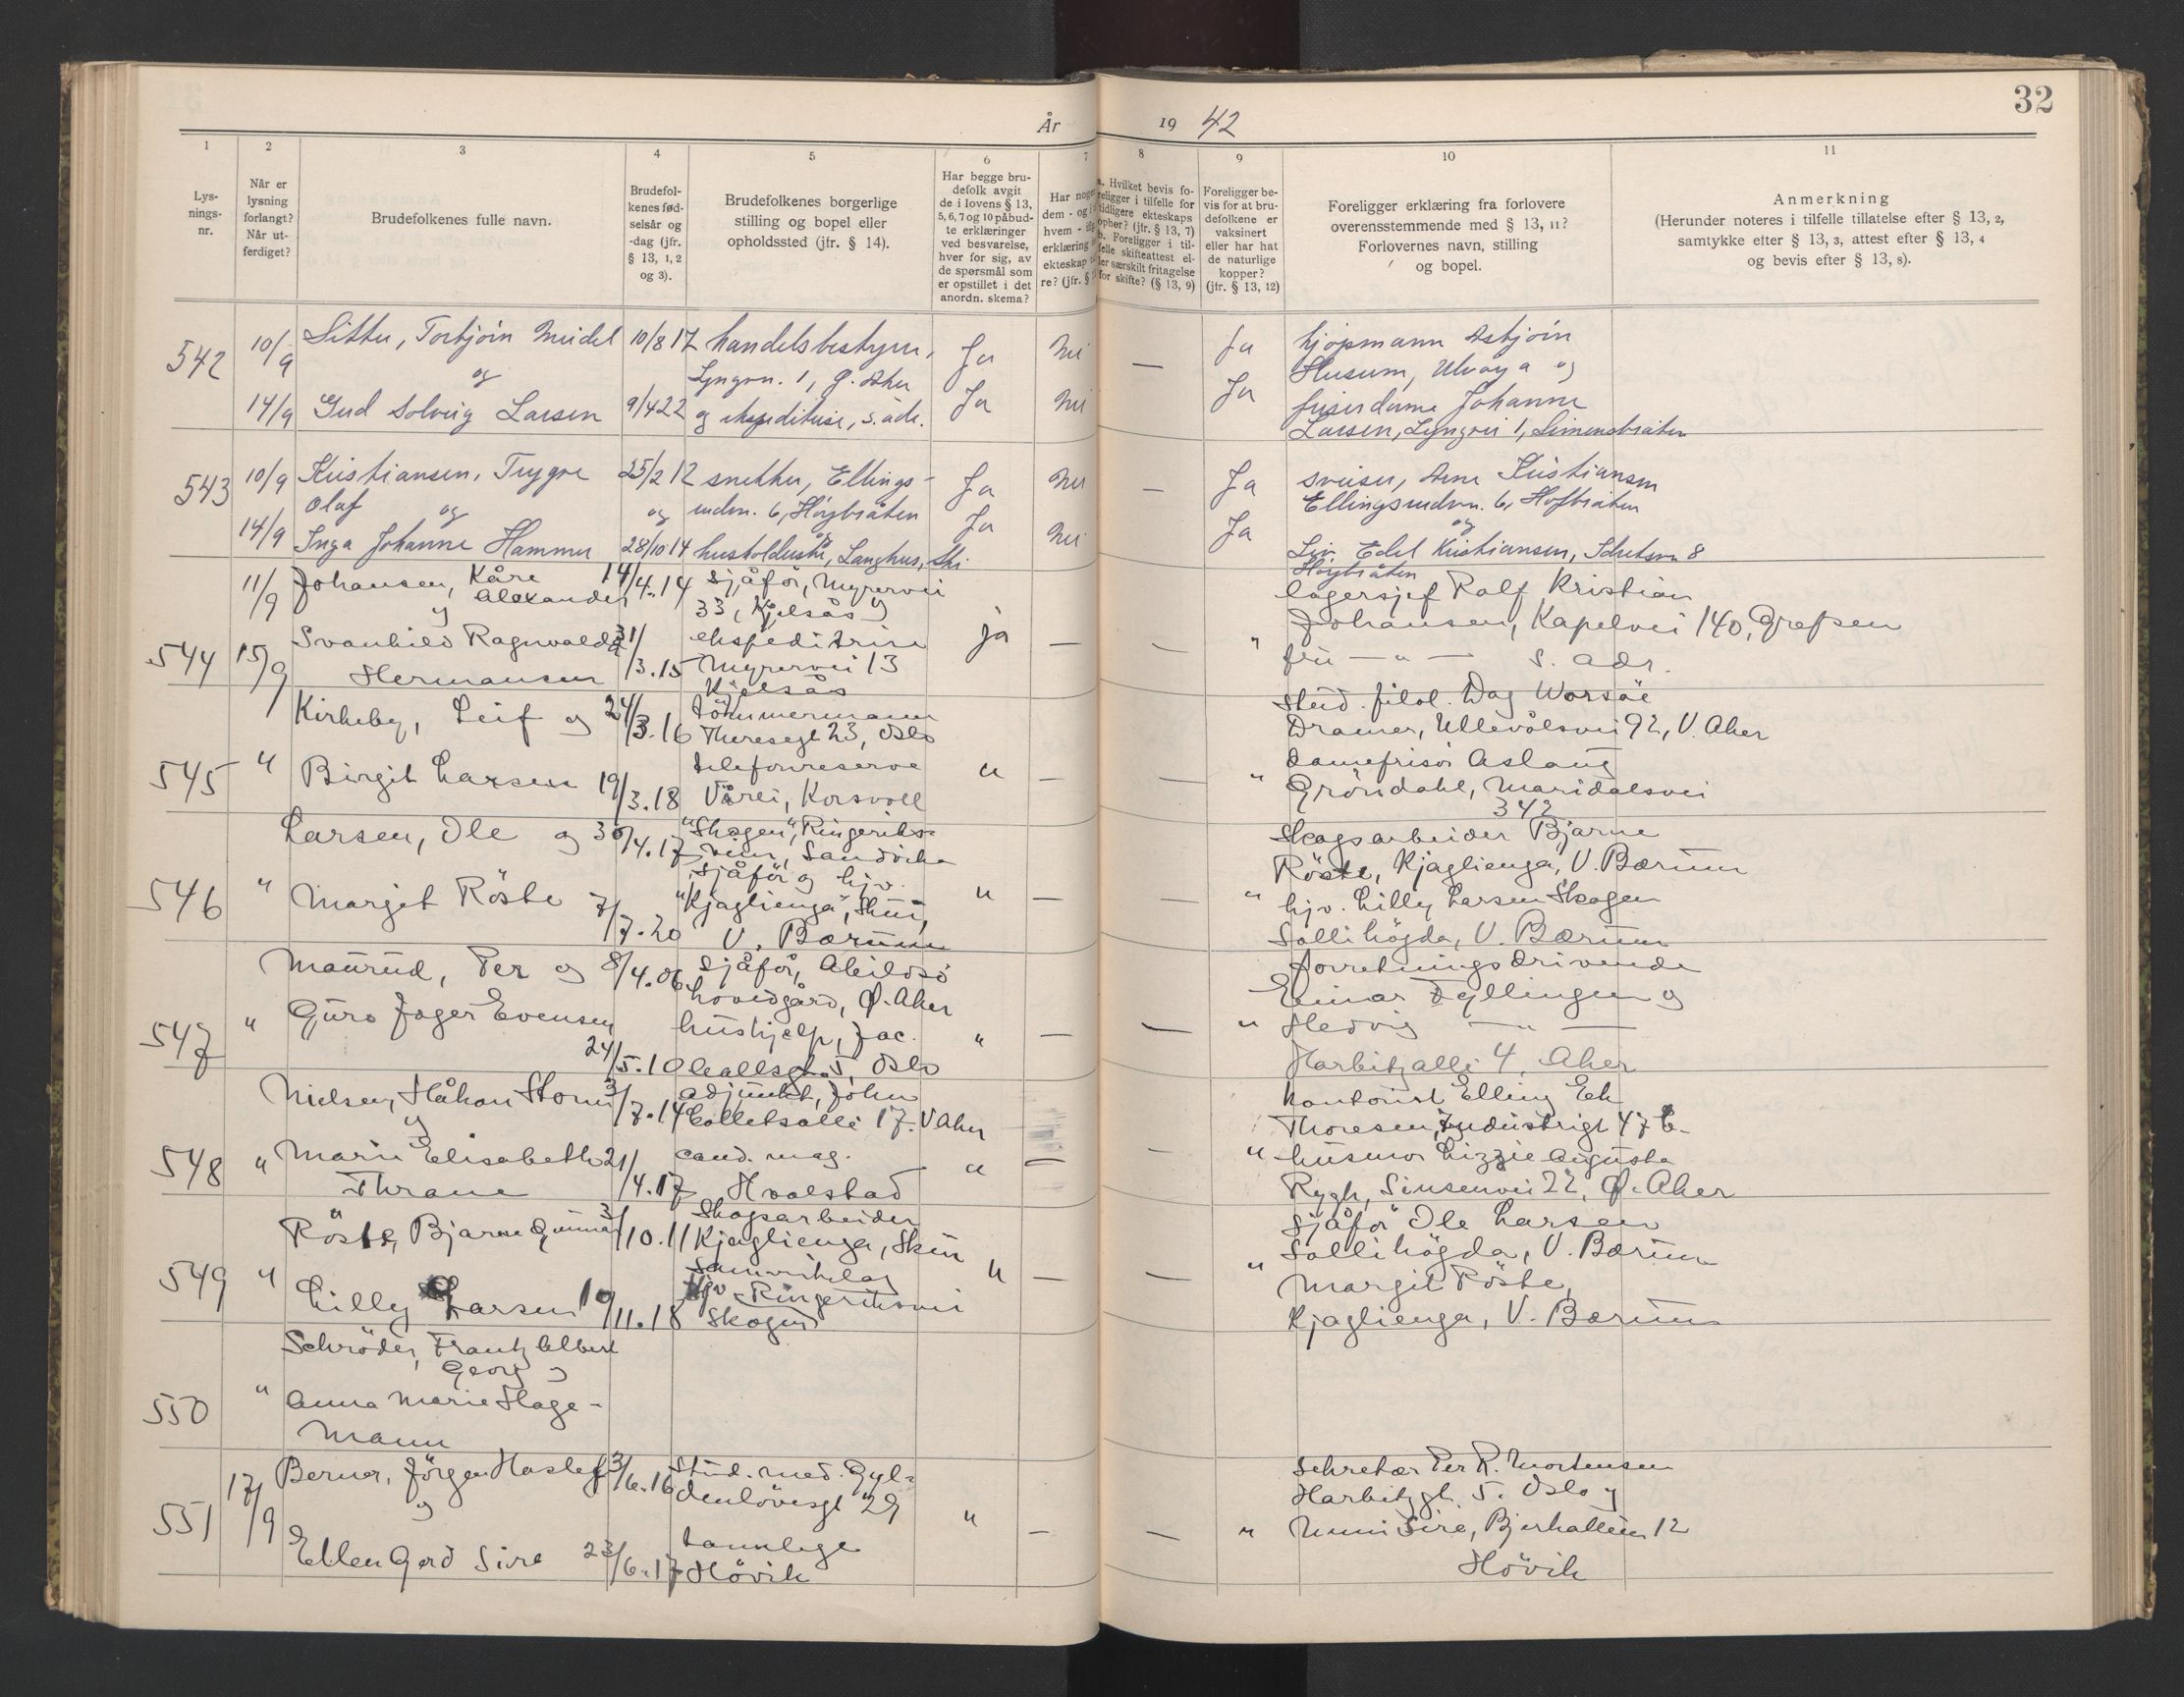 32
År 19 42
1
Lys-
nings-
nr.
2
Når er
lysning
forlangt?
Når ut-
ferdiget?
3
Brudefolkenes fulle navn.
4
Brudefol-
kenes fød-
selsår og
-dag (jfr.
§ 13, 1, 2
og 3).
5
Brudefolkenes borgerlige
stilling og bopel eller
opholdssted (jfr. § 14).
6
Har begge bru-
defolk avgit
de i lovens § 13,
5, 6, 7 og 10 påbud-
te erklæringer
ved besvarelse,
hver for sig, av
de spørsmål som
er opstillet i det
anordn. skema?
7
Har noge
dem - og i
hvem -
erklæring
ekteskap
re? (jfr. §
8
a. Hvilket bevis fo-
religger i tilfelle for
tidligere ekteskaps
ophør? (jfr. § 13, 7)
b. Foreligger i til-
felle skifteattest el-
ler særskilt fritagelse
for skifte? (§ 13, 9)
9
Foreligger be-
vis for at bru-
defolkene er
vaksinert
eller har hat
de naturlige
kopper?
(jfr. § 13, 12)
10
Foreligger erklæring fra forlovere
overensstemmende med § 13, 11?
Forlovernes navn, stilling
og bopel.
11
Anmerkning
(Herunder noteres i tilfelle tillatelse efter § 13, 2,
samtykke efter § 13, 3, attest efter § 13, 4
og bevis efter § 13, 8).
542
10/9
14/9
Torbjörn
og
Gud Solveig Larsen
10/8 17
9/4 22
handelsbestyrer,
Lyngvn. 1, Ø. Aker
og ekspeditrise, s. adr.
Ja
Ja
Nei
Nei
—
Ja
Ja
kjøpmann Asbjörn
Husum, Ulvøya og
friserdame Johanne
Larsen, Lyngvei 1, Simensbråten
543
10/9
14/9
Kristiansen, Trygve
Olaf og
Inga Johanne Hammer
25/2 12
og
28/10 14
snekker, Ellings-
rudvn. 6, Höybråten
og
husholderske, Langhus, Ski
Ja
Ja
Nei
Nei
—
Ja
Ja
sveiser, Arne Kristiansen
Ellingsrudvn. 6, Höybråten
og
Liv Edel Kristiansen, 8
Höybråten
544
11/9
15/9
Johansen, Kåre
Alexander
og
Svanhild Ragnvalda
Hermansen
14/4.14
31/3.15
sjåför, Myrervei
33, Kjelsås og
ekspeditrise
Myrervei 13
Kjelsås
ja
—
—
"
lagersjef Rolf Kristian
Johansen, Kapelvei 140, Grefsen
fru — " — s. adr.
545
"
Kirkeby, Leif og
Birgit Larsen
24/3.16
19/3.18
tömmermann
Theresegt 23, Oslo
telefonreserve
Vårei, Korsvoll
"
—
—
"
stud. filol. Dag Worsöe
Dramer, Ullevålsvei 92, V. Aker
damefrisör Aslaug
Gröndahl, Maridalsvei
342
546
"
Larsen, Ole og
Margit Röste
30/4.17
7/7.20
"Skogen", Ringeriks-
veien, Sandvika
sjåför og hjv.
"Kjaglienga", Skui,
V. Bærum
"
—
—
"
Skogsarbeider Bjarne
Röste, Kjaglienga, V. Bærum
hjv. Lilly Larsen Skogen
Sollihögda, V. Bærum
547
"
Maurud, Per og
Guro Jager Evensen
8/4.06
24/5.10
sjåför, Abildsö
hovedgård, Ø. Aker
hushjelp, Jac.
Aallsgt. 5, Oslo
"
—
—
"
forretningsdrivende
Einar Fyllingen og
Hedvig — " —
Harbitzalle 4, Aker
548
"
Nielsen, Håkon Storm
og
Marie Elisabeth
Thrane
3/7.14
21/4.17
adjunkt, John
Colletsalle 17. V Aker
cand. mag.
Hvalstad
"
—
—
"
kontorist Elling Eek
Thoresen, Industrigt 47 b.
husmor Lizzie Augusta
Rygh, Sinsenvei 22, Ø. Aker
549
"
Röste, Bjarne Gunnar
Lilly Larsen
3/10.11
10/11.18
Skogsarbeider
Kjaglienga, Skui
hjv. Ringeriksvei
Skogen
"
—
—
"
Sjåför Ole Larsen
Sollihögda, V. Bærum
Margit Röste,
Kjaglienga, V. Bærum
550
"
Schröder, Frantz Albert
Georg og
Anna Marie Hage-
mann
551
17/9
Berner, Jörgen Haslef
og
Ellen Gerd Sire
3/6.16
23/6.17
Stud. med. Gyl-
denlövesgt 29
tannlege
Hövik
"
—
—
"
Sekretær Per R. Mortensen
Harbitzgt. 5. Oslo og
Unni Sire, Bjerkalleen 12
Hövik